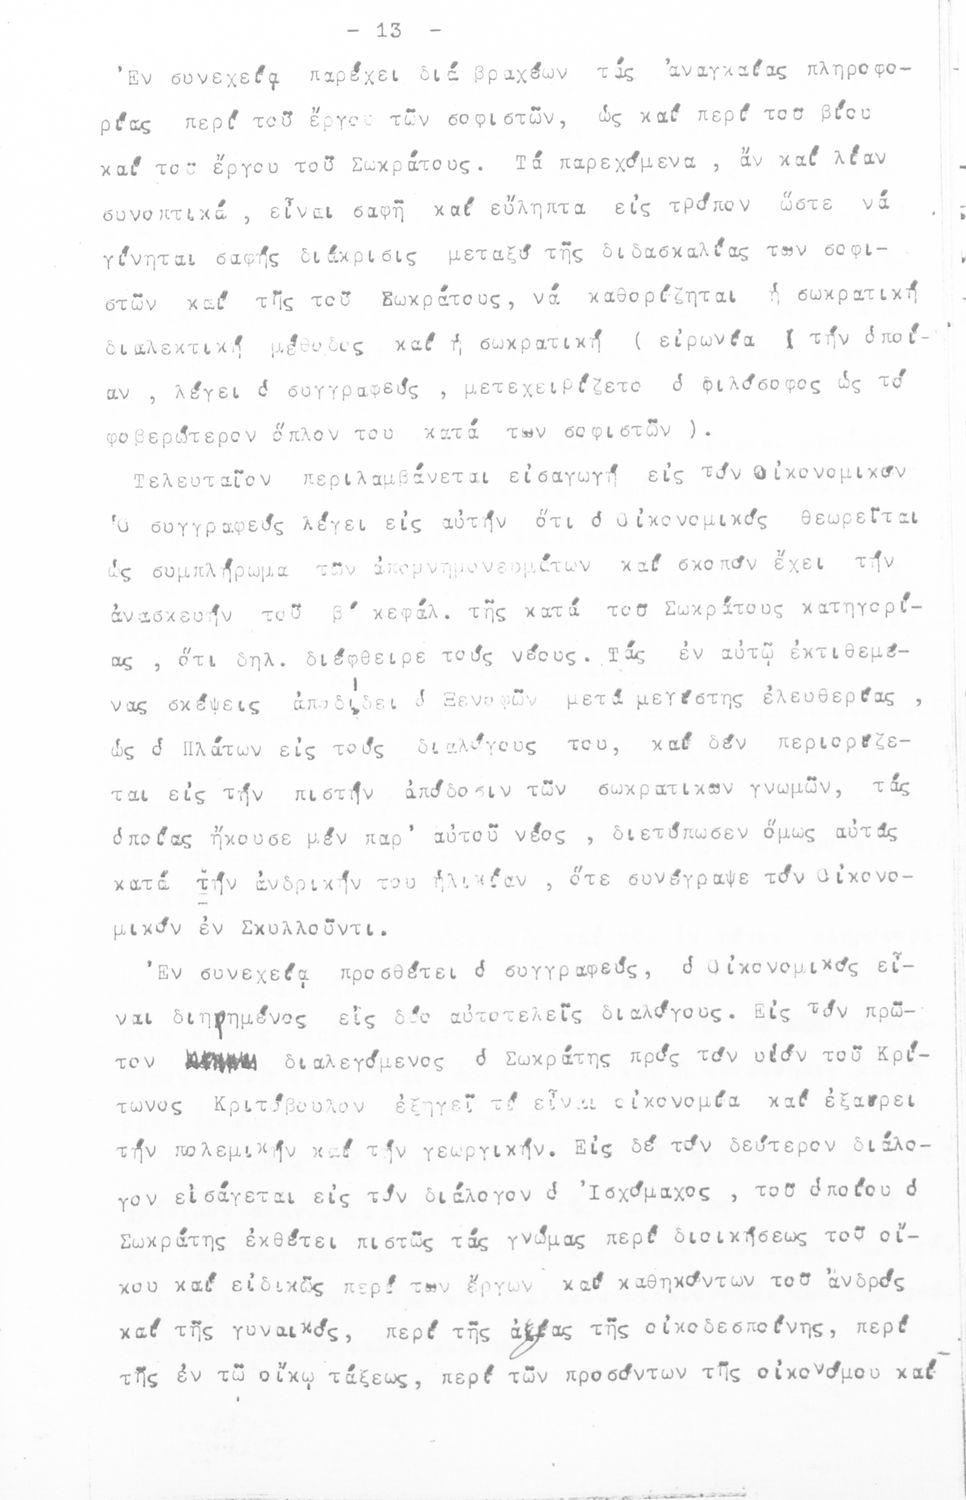 - 13 -
Ἐν συνεχείᾳ παρέχει διά βραχέων τάς ἀναγκαίας πληροφο-
ρίας περί τοῦ ἔργου τῶν σοφιστῶν, ὡς καί περί τοῦ βίου
καί τοῦ ἔργου τοῦ Σωκράτους. Τά παρεχόμενα , ἄν καί λίαν
συνοπτικά , εἶναι σαφῆ καί εὔληπτα εἰς τρόπον ὥστε νά
γίνηται σαφής διάκρισις μεταξύ τῆς διδασκαλίας τῶν σοφι-
στῶν καί τῆς τοῦ Σωκράτους, νά καθορίζηται ἡ σωκρατική
διαλεκτική μέθοδος καί ἡ σωκρατική ( εἰρωνία [ τήν ὁποί-
αν , λέγει ὁ συγγραφεύς , μετεχειρίζετο ὁ φιλόσοφος ὡς τό
φοβερώτερον ὅπλον του κατά τῶν σοφιστῶν ).
Τελευταῖον περιλαμβάνεται εἰσαγωγή εἰς τόν Οἰκονομικόν
Ὁ συγγραφεύς λέγει εἰς αὐτήν ὅτι ὁ Οἰκονομικός θεωρεῖται
ὡς συμπλήρωμα τῶν ἀπομνημονευμάτων καί σκοπόν ἔχει τήν
ἀνασκευήν τοῦ β' κεφάλ. τῆς κατά τοῦ Σωκράτους κατηγορί-
ας , ὅτι δηλ. διέφθειρε τούς νέους. Τάς ἐν αὐτῷ ἐκτιθεμέ-
νας σκέψεις ἀποδίδει ὁ Ξενοφῶν μετά μεγίστης ἐλευθερίας ,
ὡς ὁ Πλάτων εἰς τούς διαλόγους του, καί δέν περιορίζε-
ται εἰς τήν πιστήν ἀπόδοσιν τῶν σωκρατικῶν γνωμῶν, τάς
ὁποίας ἤκουσε μέν παρ' αὐτοῦ νέος , διετύπωσεν ὅμως αὐτάς
κατά τήν ἀνδρικήν του ἡλικίαν , ὅτε συνέγραψε τόν Οἰκονο-
μικόν ἐν Σκυλλοῦντι.
Ἐν συνεχείᾳ προσθέτει ὁ συγγραφεύς, ὁ Οἰκονομικός εἶ-
ναι διῃρημένος εἰς δύο αὐτοτελεῖς διαλόγους. Εἰς τόν πρῶ-
τον διαλεγόμενος ὁ Σωκράτης πρός τόν υἱόν τοῦ Κρί-
τωνος Κριτόβουλον ἐξηγεῖ τί εἶναι οἰκονομία καί ἐξαίρει
τήν πολεμικήν καί τήν γεωργικήν. Εἰς δέ τόν δεύτερον διάλο-
γον εἰσάγεται εἰς τόν διάλογον ὁ Ἰσχόμαχος , τοῦ ὁποίου ὁ
Σωκράτης ἐκθέτει πιστῶς τάς γνώμας περί διοικήσεως τοῦ οἴ-
κου καί εἰδικῶς περί τῶν ἔργων καί καθηκόντων τοῦ ἀνδρός
καί τῆς γυναικός, περί τῆς ἀξίας τῆς οἰκοδεσποίνης, περί
τῆς ἐν τῷ οἴκῳ τάξεως, περί τῶν προσόντων τῆς οἰκονόμου καί